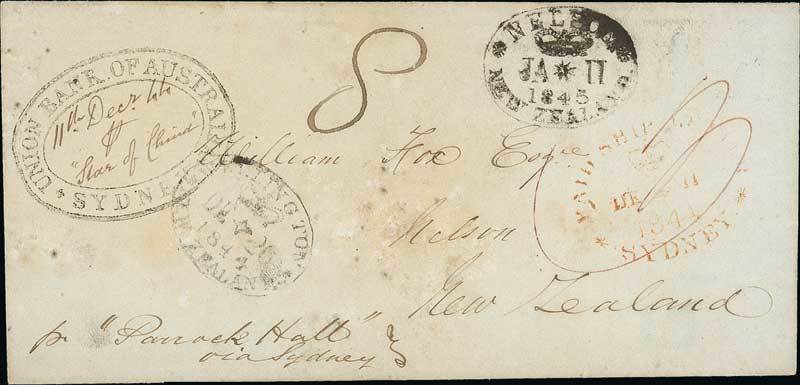 8
NELSON
JA 11
1845
NEW ZEALAND
UNION BANK OF AUSTRALIA
11th Decr 44
"Star of China"
SYDNEY
William Fox Esqre
PAID SHIP LETTER
DE 11
1844
SYDNEY
WELLINGTON
184
NEW ZEALAND
Nelson
New Zealand
pr "Parrock Hall"
via Sydney
3